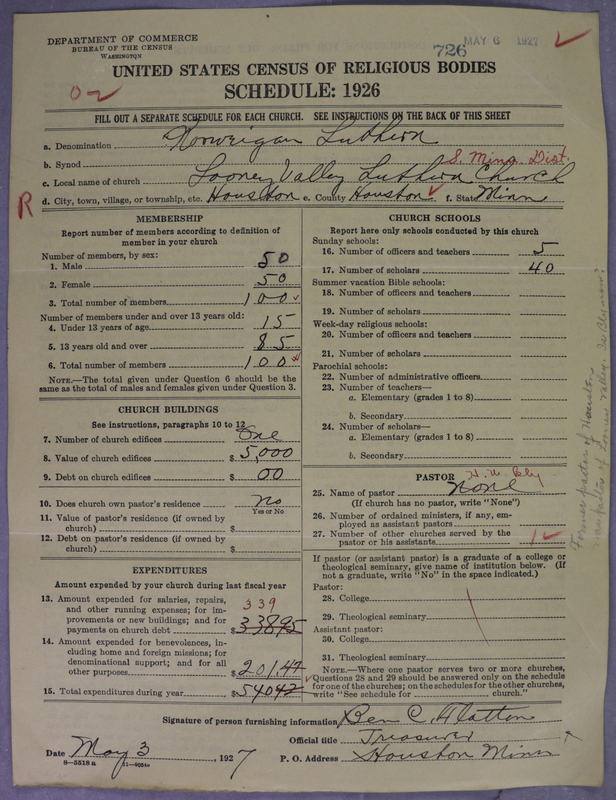 DEPARTMENT OF COMMERCE
BUREAU OF THE CENSUS
WASHINGTON
726
MAY 6 1927
UNITED STATES CENSUS OF RELIGIOUS BODIES
SCHEDULE: 1926
FILL OUT A SEPARATE SCHEDULE FOR EACH CHURCH. SEE INSTRUCTIONS ON THE BACK OF THIS SHEET
a. Denomination Norweigan Luthern
b. Synod S. Minn. Dist.
c. Local name of church Looney Valley Luthern Church
R
d. City, town, village, or township, etc. Houston e. County Houston f. State Minn
MEMBERSHIP
Report number of members according to definition of
member in your church
Number of members, by sex:
1. Male 50
2. Female 50
3. Total number of members 100
Number of members under and over 13 years old:
4. Under 13 years of age 15
5. 13 years old and over 85
6. Total number of members 100
NOTE.—The total given under Question 6 should be
the same as the total of males and females given under Question 3.
CHURCH BUILDINGS
See instructions, paragraphs 10 to 12
7. Number of church edifices One
8. Value of church edifices $ 5,000
9. Debt on church edifices $ 00
10. Does church own pastor's residence No
Yes or No
11. Value of pastor's residence (if owned by
church) $
12. Debt on pastor's residence (if owned by
church) $
EXPENDITURES
Amount expended by your church during last fiscal year
13. Amount expended for salaries, repairs,
and other running expenses; for im-
provements or new buildings; and for
payments on church debt $ 338 95
339
14. Amount expended for benevolences, in-
cluding home and foreign missions; for
denominational support; and for all
other purposes $ 201.47
15. Total expenditures during year $ 540 42
CHURCH SCHOOLS
Report here only schools conducted by this church
Sunday schools:
16. Number of officers and teachers 5
17. Number of scholars 40
Summer vacation Bible schools:
18. Number of officers and teachers
19. Number of scholars
Week-day religious schools:
20. Number of officers and teachers
21. Number of scholars
Parochial schools:
22. Number of administrative officers
23. Number of teachers—
a. Elementary (grades 1 to 8)
b. Secondary
24. Number of scholars—
a. Elementary (grades 1 to 8)
b. Secondary
PASTOR
25. Name of pastor None
(If church has no pastor, write "None")
26. Number of ordained ministers, if any, em-
ployed as assistant pastors
27. Number of other churches served by the
pastor or his assistants 1
If pastor (or assistant pastor) is a graduate of a college or
theological seminary, give name of institution below. (If
not a graduate, write "No" in the space indicated.)
Pastor:
28. College
29. Theological seminary
Assistant pastor:
30. College
31. Theological seminary
NOTE.—Where one pastor serves two or more churches,
Questions 28 and 29 should be answered only on the schedule
for one of the churches; on the schedules for the other churches,
write "See schedule for church."
Signature of person furnishing information Ben C.
Official title Treasurer
Date May 3, 1927 P. O. Address Houston Minn
8—5518 a 11—9054
Former pastor of Houston